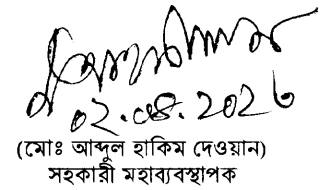 ০২.০৪.২০২৩
(মোঃ আব্দুল হাকিম দেওয়ান)
সহকারী মহাব্যবস্থাপক